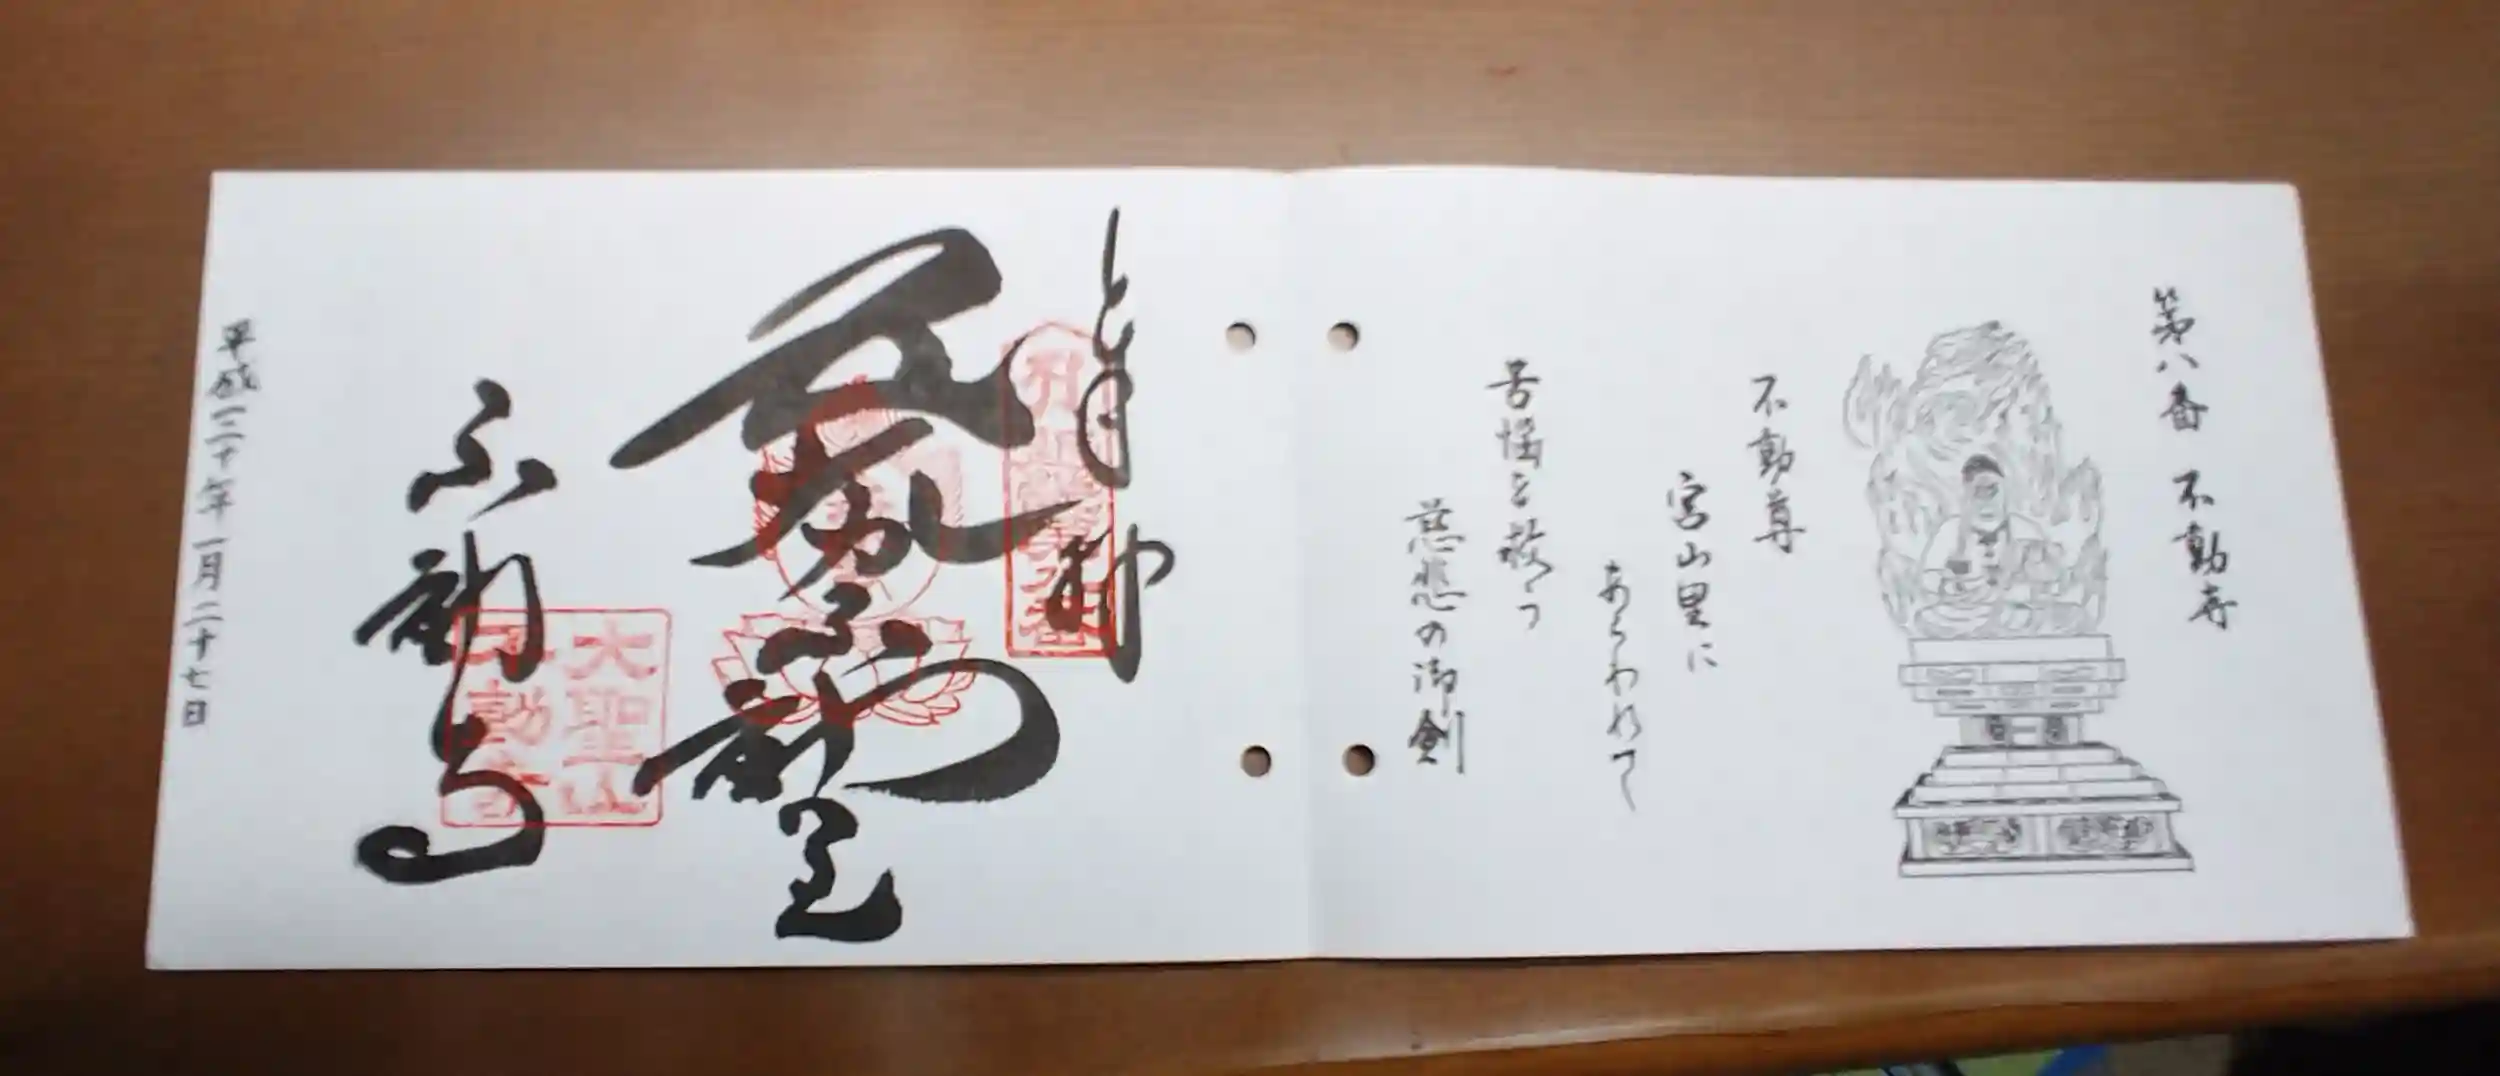 第八番 不動寺
不動尊
宮山里に
あらわれて
苦悩を救う
慈悲の御剣
奉拝
不動
不動寺
大聖山
不動寺
平成三十年一月二十七日